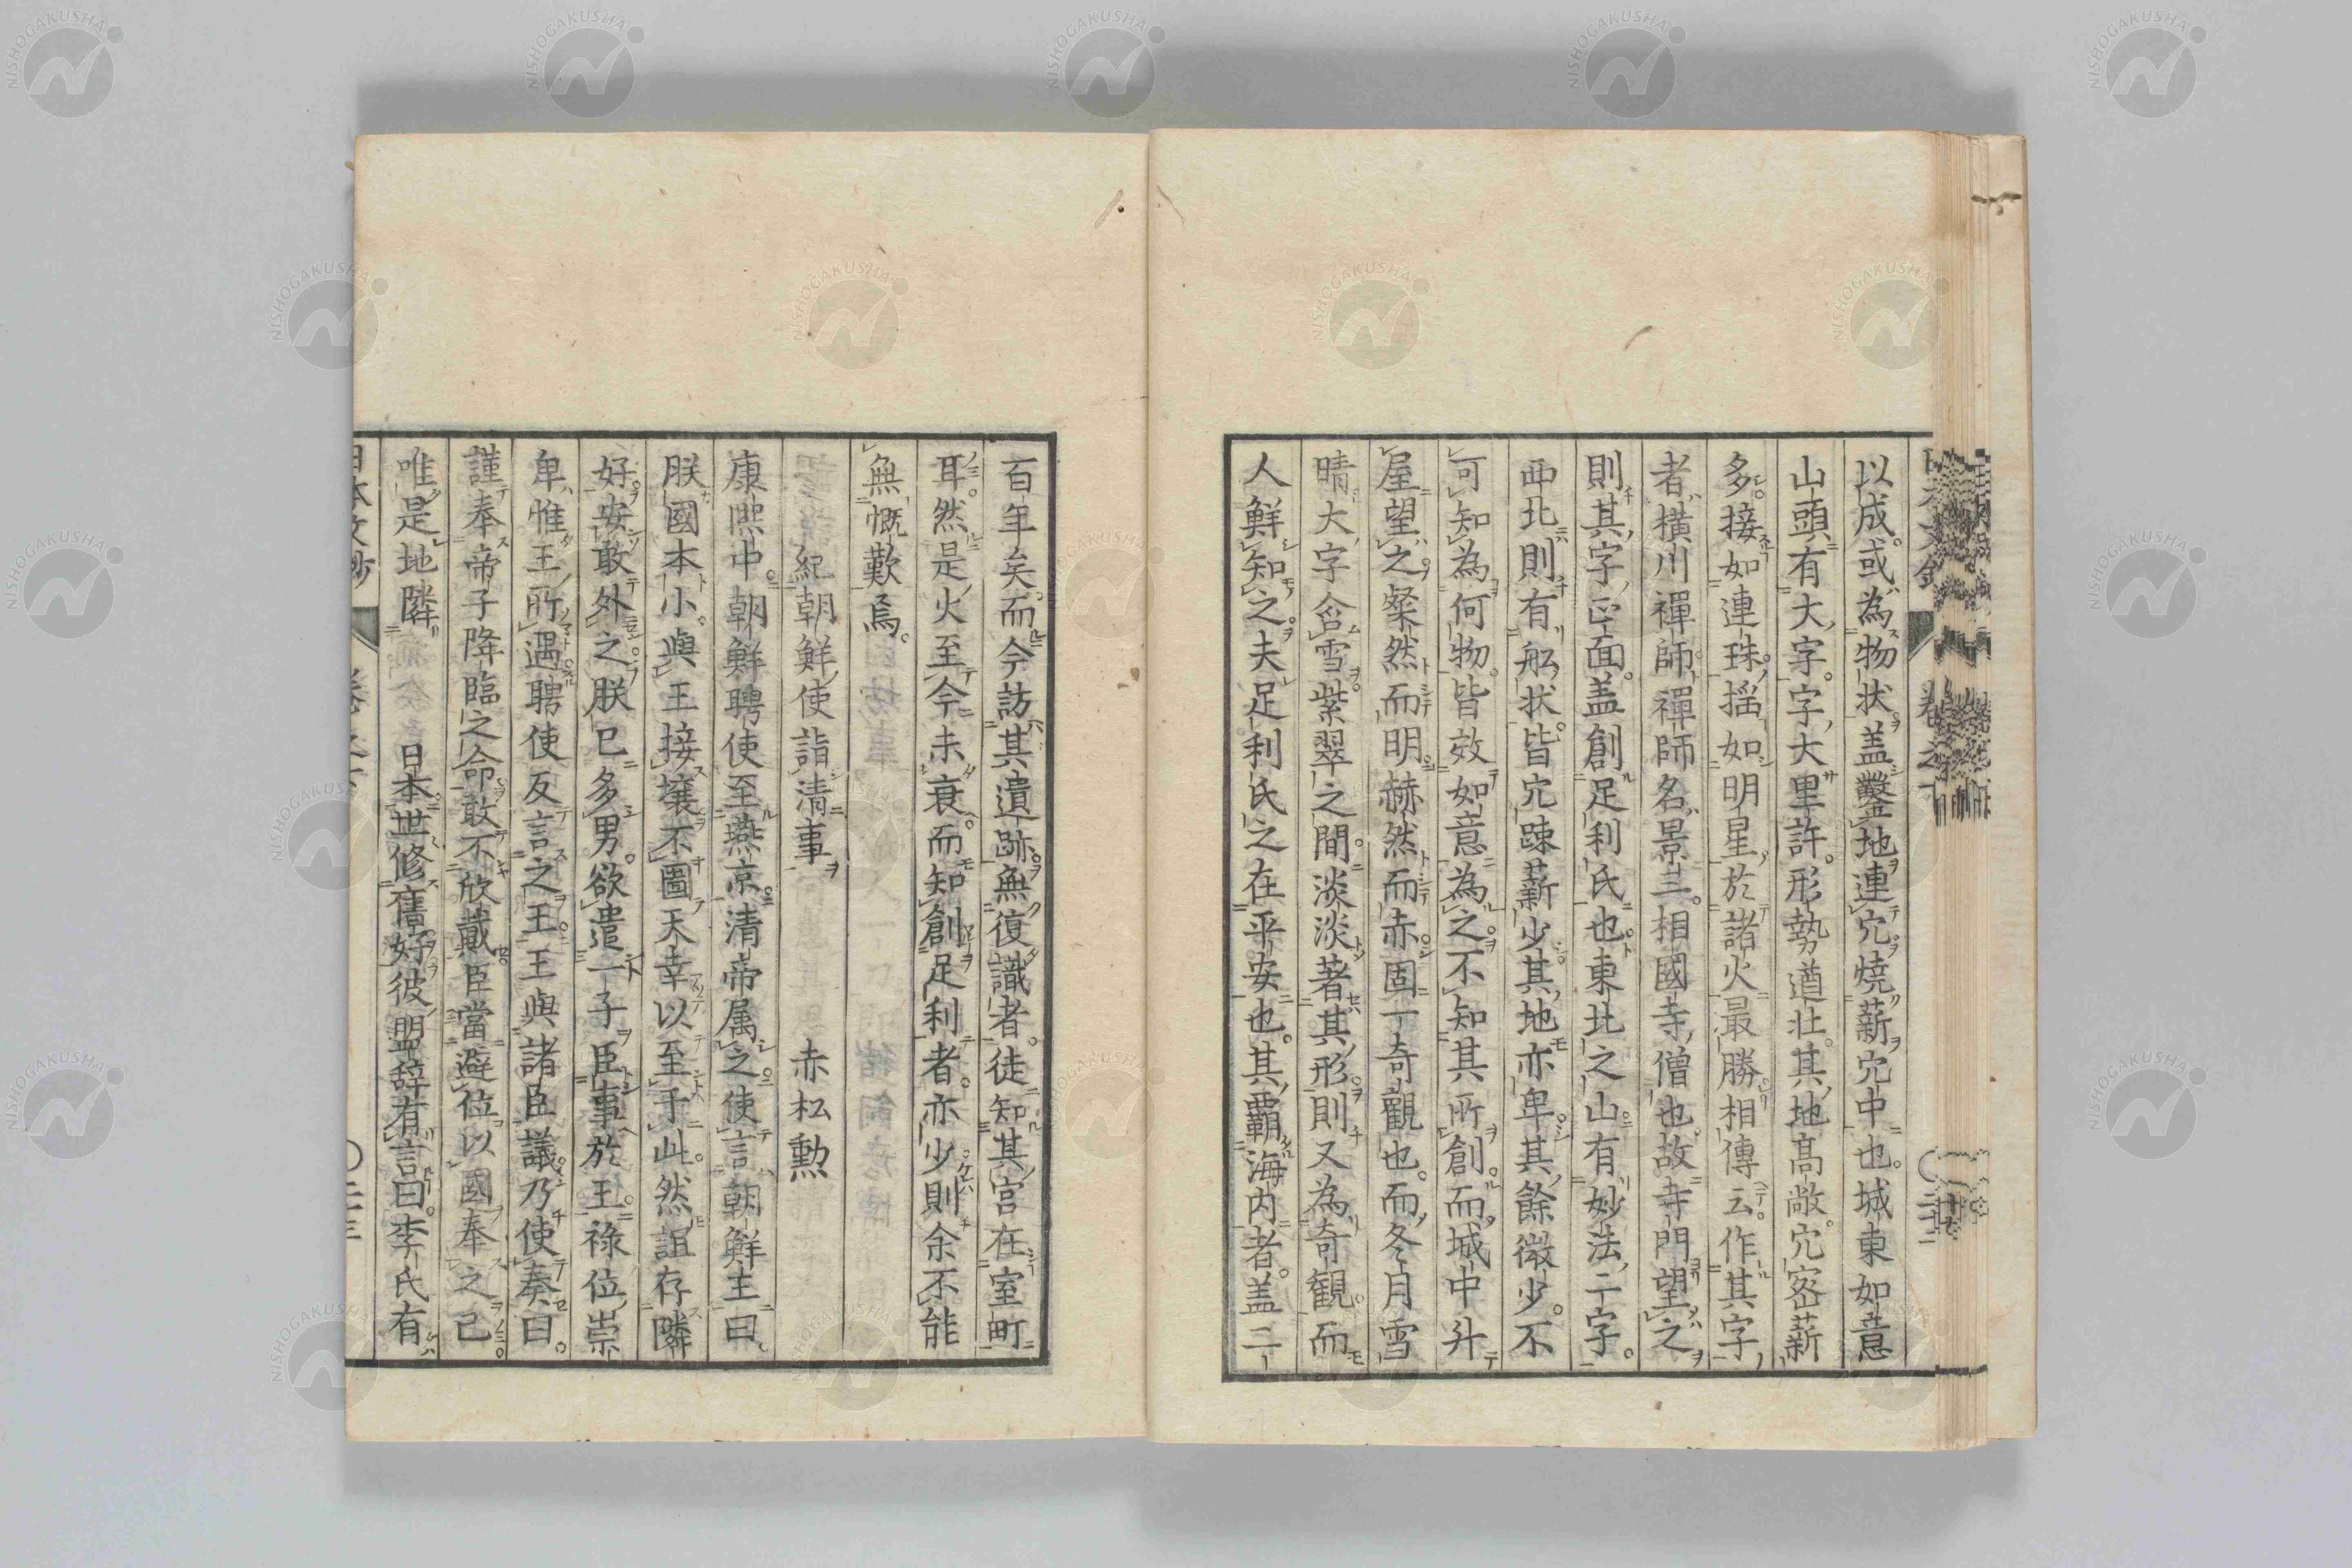 以成或為物狀盖鑿地連穴燒薪穴中也城東如意
山頭有大字字大里許形勢遒壯其地高敞穴密薪
多接如連珠揺如明星於諸火最勝相傳云作其字
者橫川禪師禪師名景三相國寺僧也故寺門望之
則其字正面盖創足利氏也東北之山有妙法二字
西北則有舩狀皆穴踈薪少其地亦卑其餘微少不
可知為何物皆效如意為之不知其所創而城中升
屋望之粲然而明赫然而赤固一奇觀也而冬月雪
晴大字含雪紫翠之間淡淡著其形則又為奇觀而
人鮮知之夫足利氏之在平安也其覇海内者盖二
百年矣而今訪其遺跡無復識者徒知其宮在室町
耳然是火至今未衰而知創足利者亦少則余不能
無慨歎焉
紀朝鮮使詣清事 赤松勲
康熙中朝鮮聘使至燕京清帝属之使言朝鮮主曰
朕國本小與王接壤不圖天幸以至于此然詛存隣
好安敢外之朕已多男欲遣一子臣事於王祿位崇
卑惟王所遇聘使反言之王王與諸臣議乃使奏曰
謹奉帝子降臨之命敢不欣戴臣當避位以國奉之已
唯是地隣 日本世修舊好彼盟辞有言曰李氏有
日本文鈔
NISHOGAKUSHA